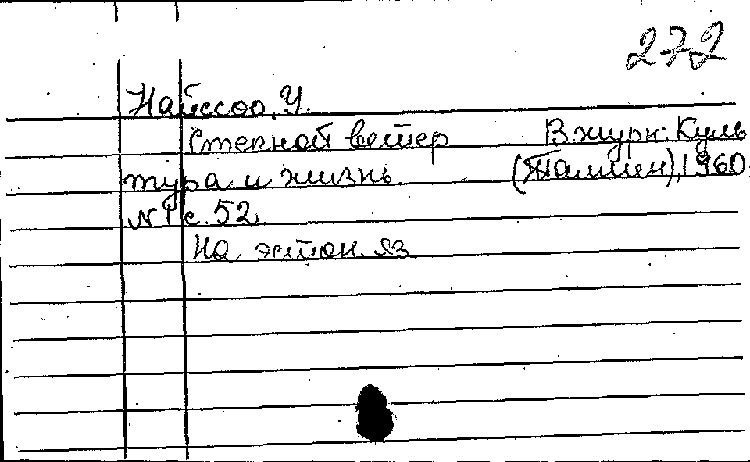 272
Найссоо, У.
Степной ветер В журн: Куль
тура и жизнь (Таллин), 1960
№ 1 с. 52.
На эстон. яз